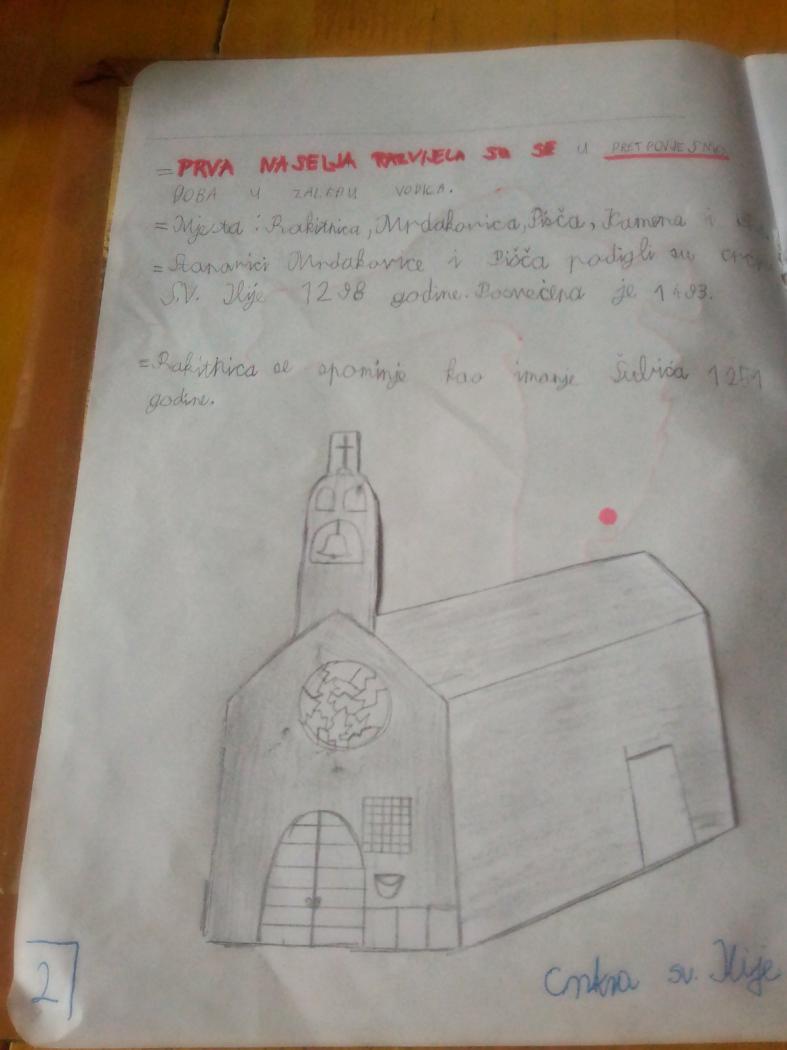 = PRVA NASELJA RAZVIJELA SU SE U PRETPOVJESNO
DOBA U ZALEĐU VODICA.
= Mjesta: Rakitnica, Mrdakovica, Pišča, Kamena i
= Stanovnici Mrdakovice i Pišča podigli su crkv
S.V. Ilije 1298 godine. Posvećena je 1493.
= Rakitnica se spominje kao imanje Šubića 1251
godine.
2
Crkva sv. Ilije